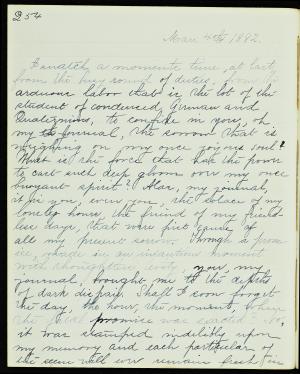 254
Mar 4th 1892.
I snatch a moments time, at last,
from the busy round of duties, from the
arduous labor that is the lot of the
student of condensed German and
Quaternions, to confide in you, oh,
my journal, the sorrow that is
weighing on my once joyous soul?
What is the force that has the power
to cast such deep gloom over my once
buoyant spirit? Alas, my journal,
it is you, even you, the solace of my
lonely hours, the friend of my friend-
less days, that were first cause of
all my present sorrow. Through a prom-
ise, made in an incautious moment
with thoughtless levity, you, my
journal, brought me to the depths
of dark despair. Shall I soon forget
the day, the hour, the moment, when
the promise was No,
it was stamped indelibly upon
my memory and each particular of
the scene will ever remain fresh in